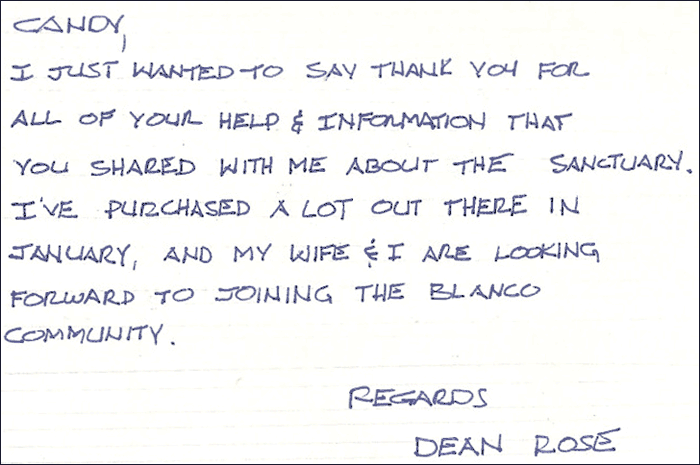 CANDY,
I JUST WANTED TO SAY THANK YOU FOR
ALL OF YOUR HELP & INFORMATION THAT
YOU SHARED WITH ME ABOUT THE SANCTUARY.
I'VE PURCHASED A LOT OUT THERE IN
JANUARY, AND MY WIFE & I ARE LOOKING
FORWARD TO JOINING THE BLANCO
COMMUNITY.
REGARDS
DEAN ROSE